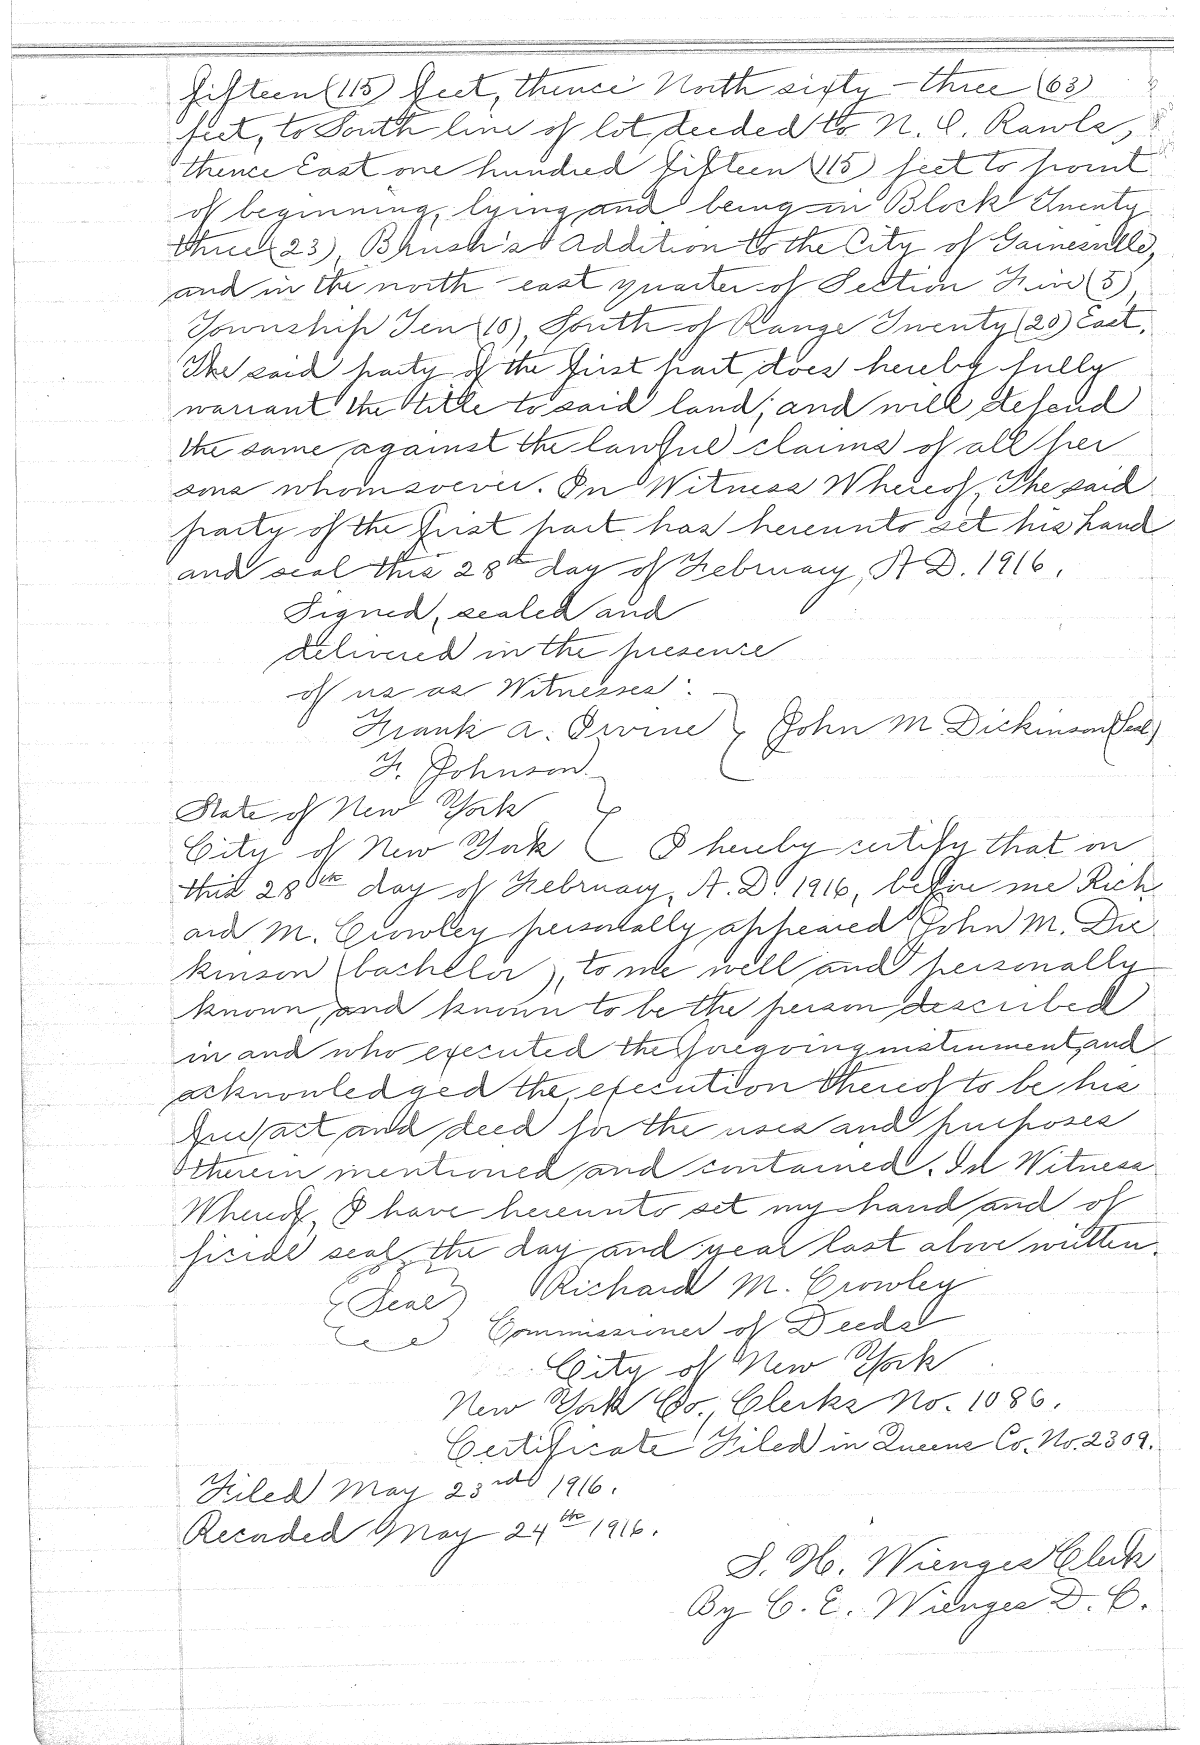 fifteen (115) feet, thence North sixty-three (63)
feet, to South line of lot deeded to N. C. Rawls,
thence East one hundred fifteen (115) feet to point
of beginning, lying and being in Block Twenty
three (23), Brush's Addition to the City of Gainesville,
and in the north east quarter of Section Five (5),
Township Ten (10), South of Range Twenty (20) East.
The said party of the first part does hereby fully
warrant the title to said land; and will defend
the same against the lawful claims of all per
sons whomsoever. In Witness Whereof, The said
party of the first part has hereunto set his hand
and seal this 28th day of February, A D. 1916.
Signed, sealed and
delivered in the presence
of us as Witnesses:
Frank A. Irvine } John M Dickinson (Seal)
F. Johnson.
State of New York
City of New York } I hereby certify that on
this 28th day of February, A. D. 1916, before me Rich
ard M. Crowley personally appeared John M. Dic
kinson (bachelor), to me well and personally
known, and known to be the person described
in and who executed the foregoing instrument, and
acknowledged the execution thereof to be his
free act and deed for the uses and purposes
therein mentioned and contained. In Witness
Whereof, I have hereunto set my hand and of
ficial seal the day and year last above written.
(Seal) Richard M. Crowley
Commissioner of Deeds
City of New York
New York Co., Clerks No. 1086.
Certificate Filed in Queens Co. No. 2309.
Filed May 23rd 1916.
Recorded May 24th 1916.
S. H. Wienges Clerk
By C. E. Wienges D. C.